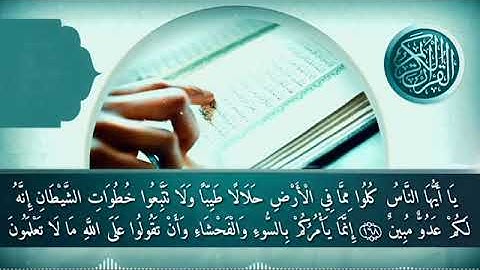 القرآن الكريم
يَا أَيُّهَا النَّاسُ كُلُوا مِمَّا فِي الْأَرْضِ حَلَالًا طَيِّبًا وَلَا تَتَّبِعُوا خُطُوَاتِ الشَّيْطَانِ إِنَّهُ
لَكُمْ عَدُوٌّ مُبِينٌ ١٦٨ إِنَّمَا يَأْمُرُكُمْ بِالسُّوءِ وَالْفَحْشَاءِ وَأَنْ تَقُولُوا عَلَى اللَّهِ مَا لَا تَعْلَمُونَ